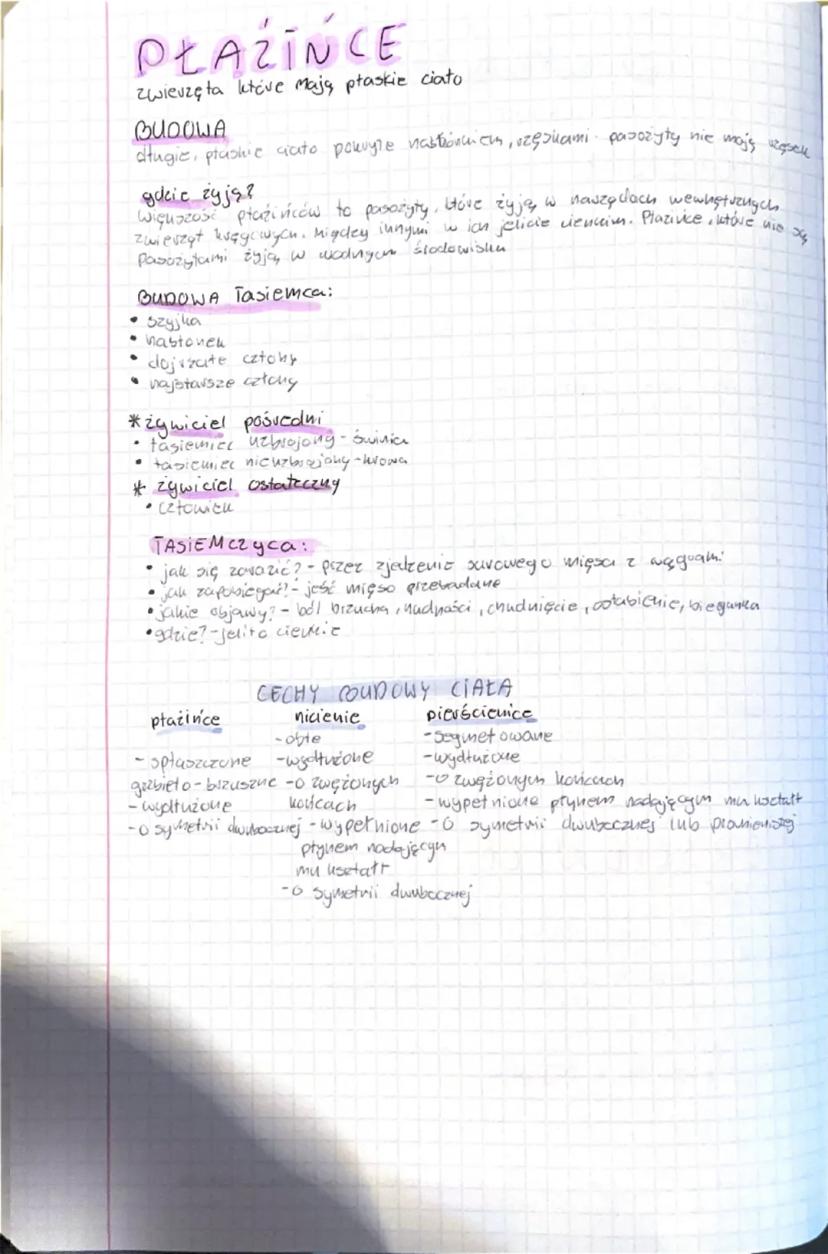 PŁAZIŃCE
zwierzęta które mają płaskie ciało
BUDOWA
długie, płaskie ciało pokryte nabłonkiem, rzęskami. pasożyty nie mają rzęsek
gdzie żyją?
większość płazińców to pasożyty, które żyją w narządach wewnętrznych
zwierząt kręgowych. Między innymi w ich jelicie cienkim. Płazińce, które nie są
pasożytami żyją w wodnym środowisku
BUDOWA Tasiemca:
• szyjka
• nabłonek
• dojrzałe człony
• najstarsze człony
* żywiciel pośredni
• tasiemiec uzbrojony - świnia
• tasiemiec nieuzbrojony - krowa
* żywiciel ostateczny
• człowiek
TASIEMCZyca:
• jak się zarazić? - przez zjedzenie surowego mięsa z wągrami
• jak zapobiegać? - jeść mięso przebadane
• jakie objawy? - ból brzucha, nudności, chudnięcie, osłabienie, biegunka
• gdzie? - jelito cienkie
CECHY BUDOWY CIAŁA
płazińce nicienie pierścienice
- obłe - segmetowane
- spłaszczone - wydłużone - wydłużone
grzbieto - brzuszne - o zwężonych - o zwężonych końcach
- wydłużone końcach - wypełnione płynem nadającym mu kształt
- o symetrii dwubocznej - wypełnione - o symetrii dwubocznej lub promienistej
płynem nadającym
mu kształt
- o symetrii dwubocznej